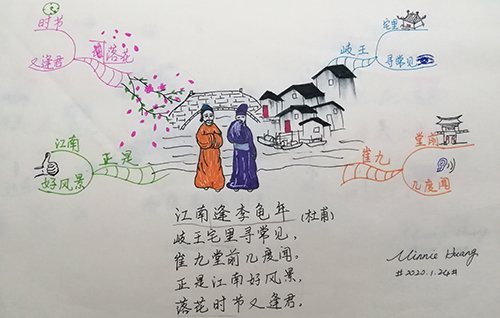 时节
落花
又逢君
宅里
岐王
寻常见
江南
正是
好风景
堂前
崔九
几度闻
江南逢李龟年 (杜甫)
岐王宅里寻常见,
崔九堂前几度闻。
正是江南好风景,
落花时节又逢君.
Minnie Huang
#2020.1.24#